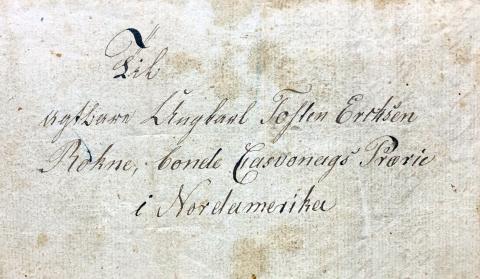 Til
agtbare Ungkarl Tosten Ericksen
Rokne, bonde Casvonags Prærie
i Nordamerika